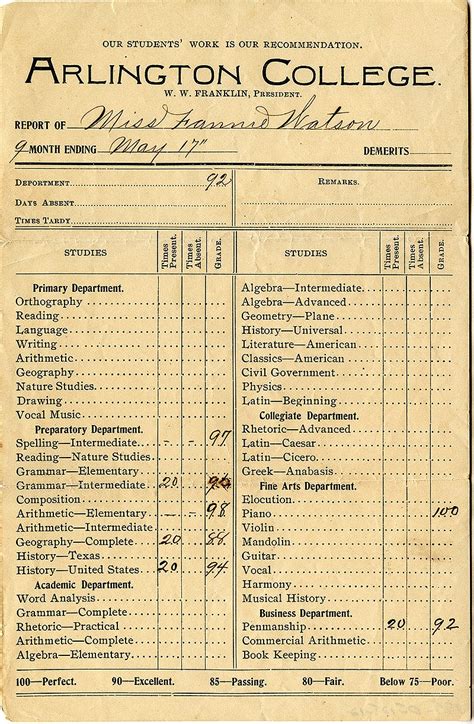 OUR STUDENTS' WORK IS OUR RECOMMENDATION.
ARLINGTON COLLEGE.
W. W. FRANKLIN, PRESIDENT.
REPORT OF Miss Fannie Watson
9 MONTH ENDING May 17" DEMERITS
DEPORTMENT 92
DAYS ABSENT
TIMES TARDY
REMARKS.
STUDIES Times Present. Times Absent. GRADE.
Primary Department.
Orthography
Reading
Language
Writing
Arithmetic
Geography
Nature Studies
Drawing
Vocal Music
Preparatory Department.
Spelling—Intermediate 97
Reading—Nature Studies
Grammar—Elementary
Grammar—Intermediate 20
Composition
Arithmetic—Elementary 98
Arithmetic—Intermediate
Geography—Complete 20 88
History—Texas
History—United States 20 94
Academic Department.
Word Analysis
Grammar—Complete
Rhetoric—Practical
Arithmetic—Complete
Algebra—Elementary
STUDIES Times Present. Times Absent. GRADE.
Algebra—Intermediate
Algebra—Advanced
Geometry—Plane
History—Universal
Literature—American
Classics—American
Civil Government
Physics
Latin—Beginning
Collegiate Department.
Rhetoric—Advanced
Latin—Caesar
Latin—Cicero
Greek—Anabasis
Fine Arts Department.
Elocution
Piano 100
Violin
Mandolin
Guitar
Vocal
Harmony
Musical History
Business Department.
Penmanship 20 92
Commercial Arithmetic
Book Keeping
100—Perfect. 90—Excellent. 85—Passing. 80—Fair. Below 75—Poor.